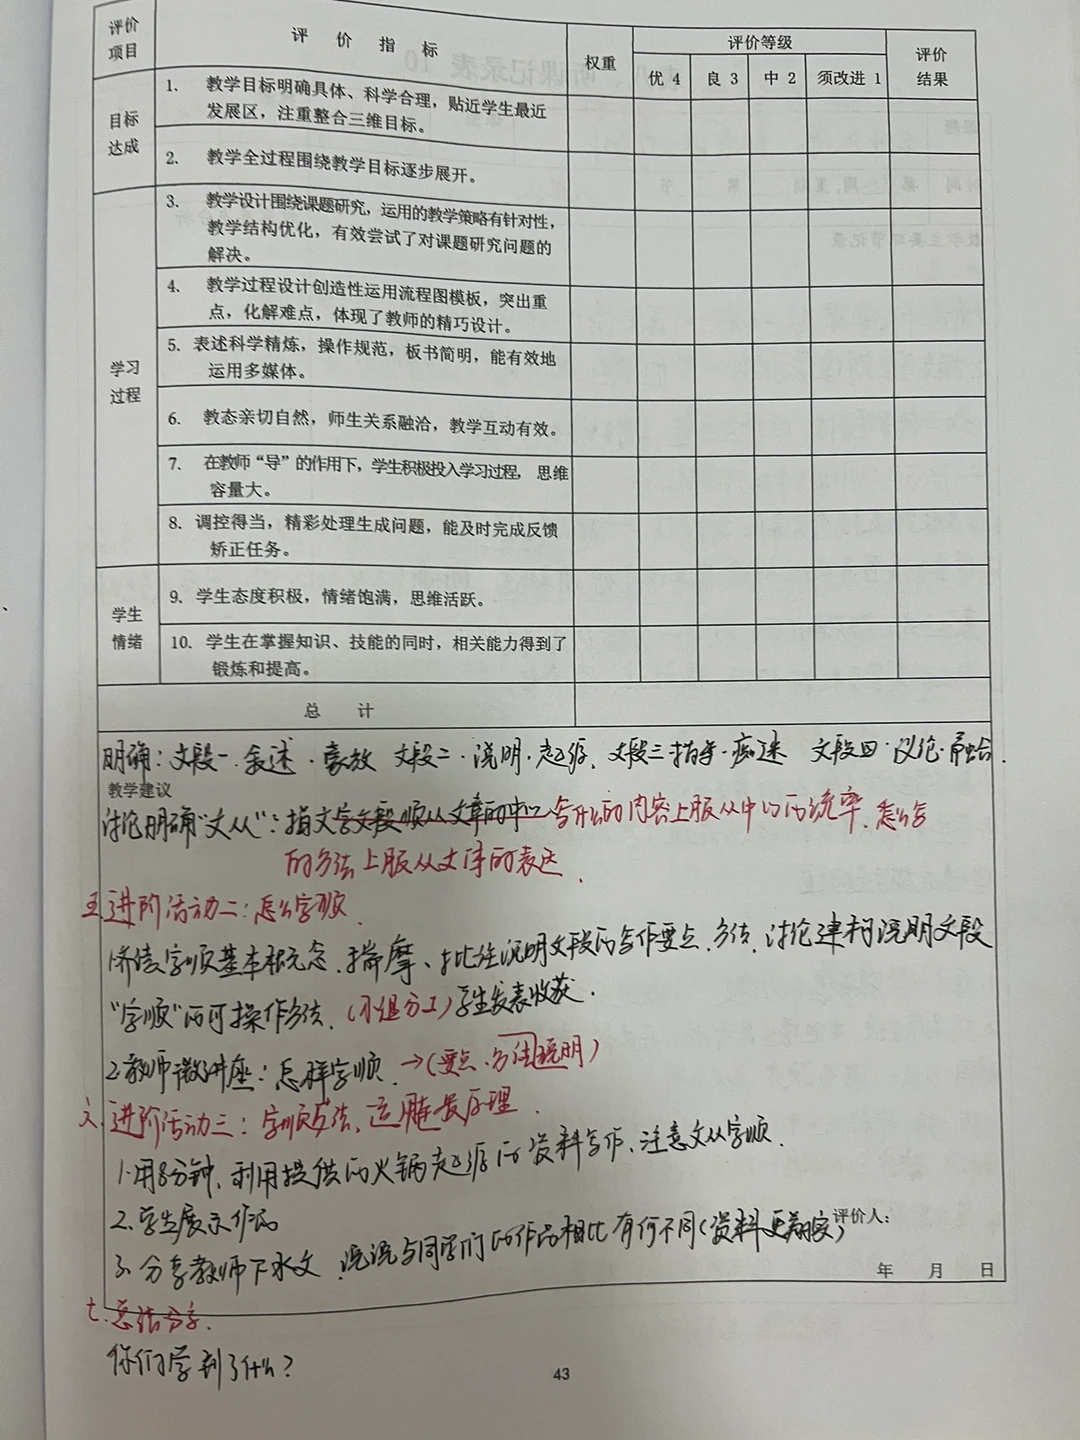 评价项目 评价指标 权重 评价等级 评价结果
优 4 良 3 中 2 须改进 1
目标达成
1. 教学目标明确具体、科学合理，贴近学生最近
发展区，注重整合三维目标。
2. 教学全过程围绕教学目标逐步展开。
学习过程
3. 教学设计围绕课题研究，运用的教学策略有针对性，
教学结构优化，有效尝试了对课题研究问题的
解决。
4. 教学过程设计创造性运用流程图模板，突出重
点，化解难点，体现了教师的精巧设计。
5. 表述科学精炼，操作规范，板书简明，能有效地
运用多媒体。
6. 教态亲切自然，师生关系融洽，教学互动有效。
7. 在教师“导”的作用下，学生积极投入学习过程，思维
容量大。
8. 调控得当，精彩处理生成问题，能及时完成反馈
矫正任务。
学生情绪
9. 学生态度积极，情绪饱满，思维活跃。
10. 学生在掌握知识、技能的同时，相关能力得到了
锻炼和提高。
总 计
明确：文段一·叙述·豪放 文段二·说明·起源、文段三·描写·痴迷 文段四·议论·
教学建议
讨论明确“文从”：指文学文段顺从文章的中心 写什么的内容上服从中心的统率，怎么写
的方法上服从文体的表达.
五.进阶活动二：怎么字顺
字顺基本概念，揣摩、批注说明文段的写作要点、方法，讨论建构说明文段
“字顺”的可操作方法，（小组分工）学生发表收获.
2.教师微讲座：怎样字顺 →（要点、方法说明）
六.进阶活动三：字顺方法、运用原理.
1.用8分钟，利用提供的火锅起源的资料写作，注意文从字顺.
2.学生展示作品
3.分享教师下水文，说说与同学们的作品相比有何不同（资料更翔实）
评价人：
年 月 日
七.总结分享.
你们学到了什么？
43